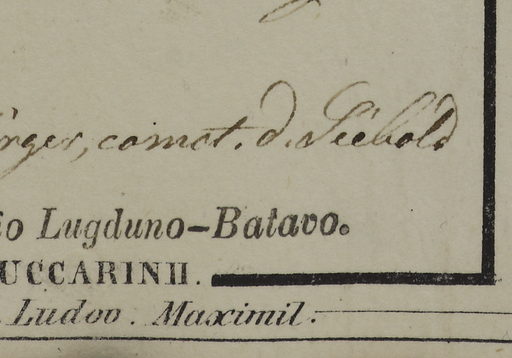 rger, comot. d. Siebold
io Lugduno-Batavo.
UCCARINII.
Ludov. Maximil.